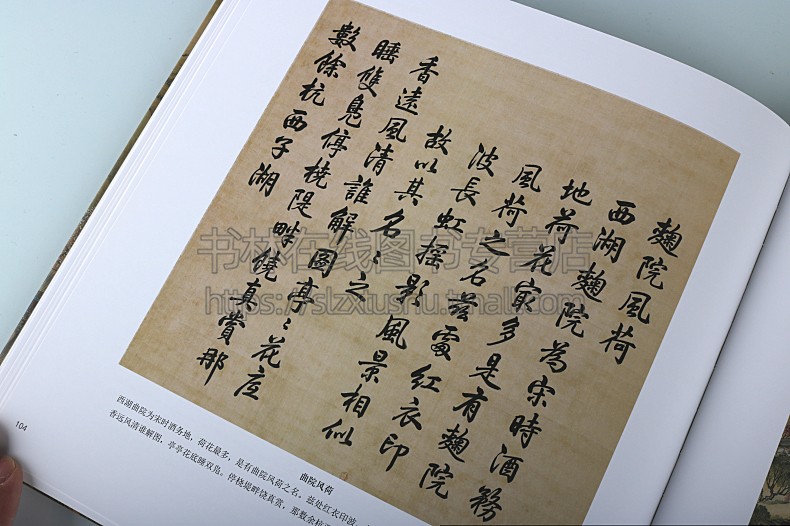 麴院風荷
西湖麴院為宋時酒務
地荷花最多是有麴院
風荷之名茲處紅衣印
波長虹搖影風景相似
故以其名々之
香遠風清誰解圖亭々花底
睡雙鳧停橈隄畔饒真賞那
數餘杭西子湖
曲院风荷
西湖曲院为宋时酒务地，荷花最多，是有曲院风荷之名，兹处红衣印波，
香远风清谁解图，亭亭花底睡双凫。停桡堤畔饶真赏，那数余杭
104
书林在线图书专营店
https://slzxtushu.tmall.com